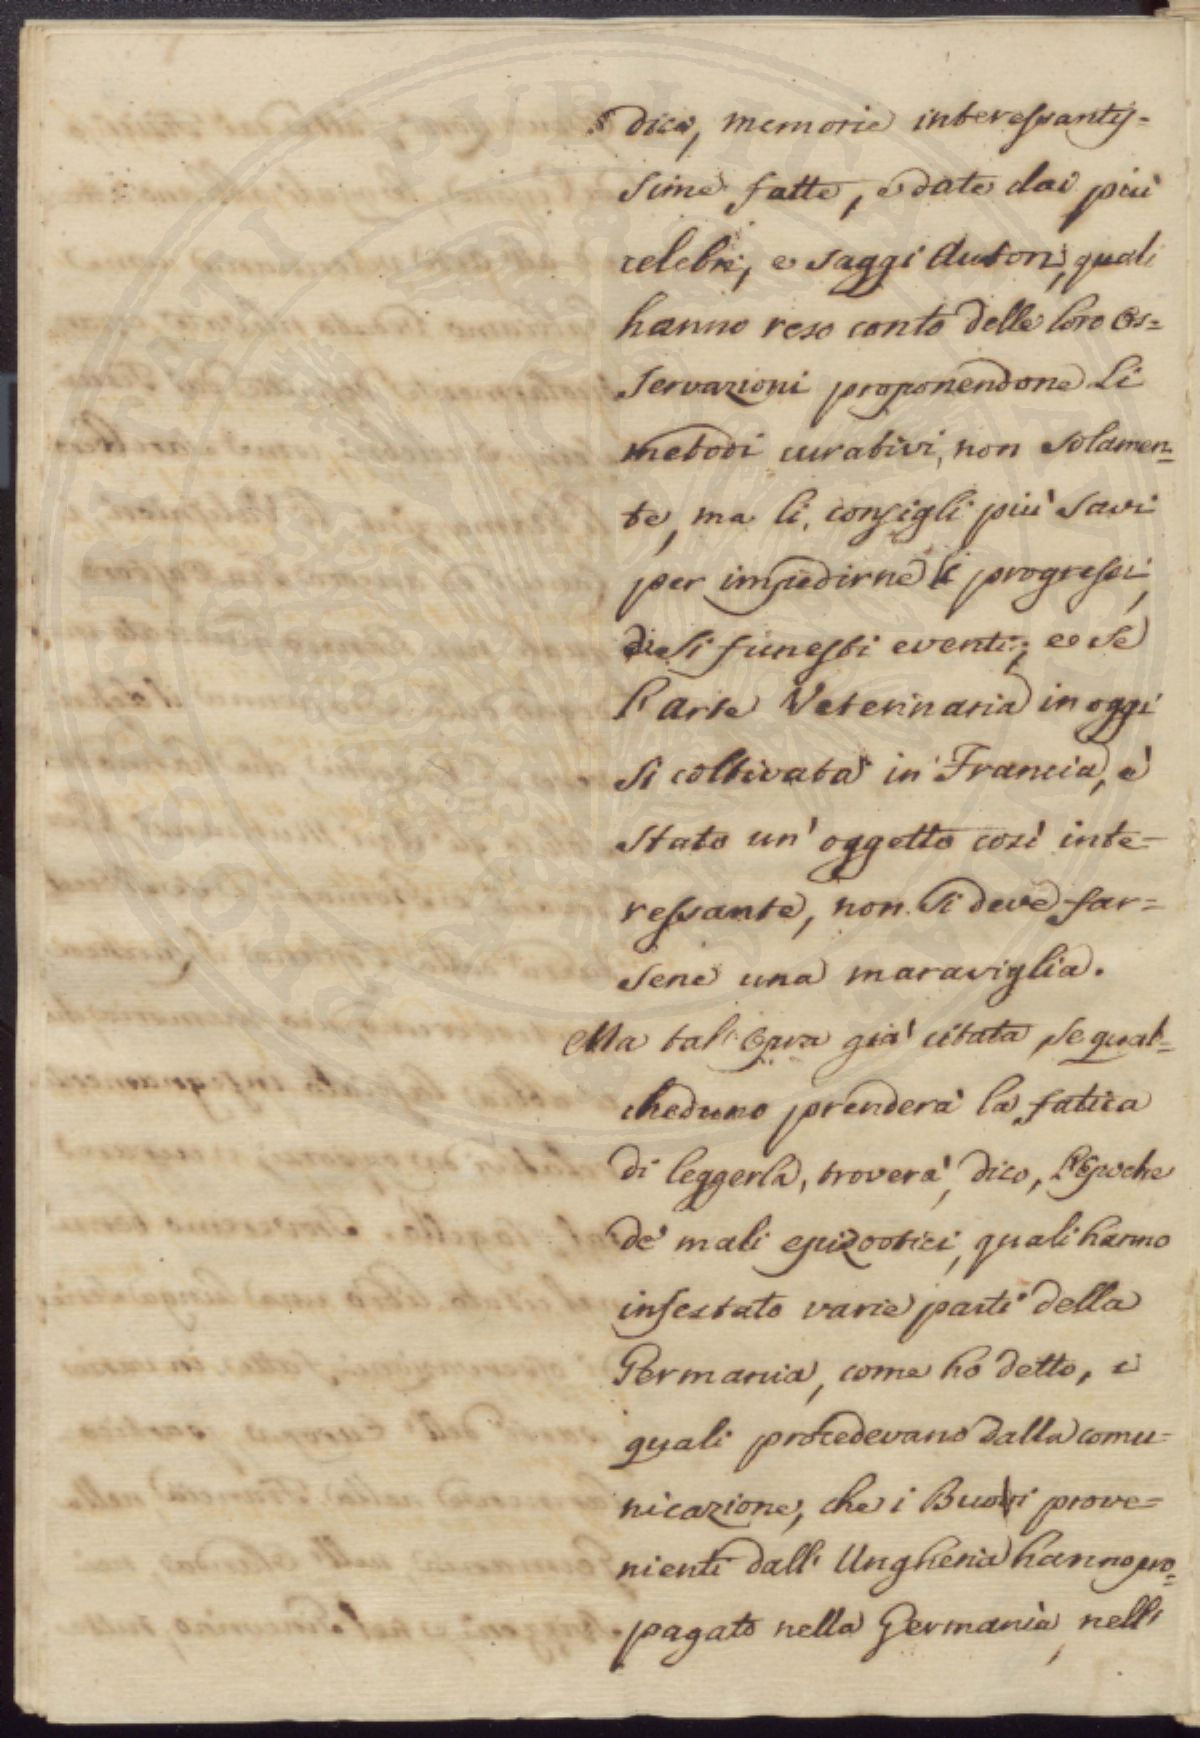 dica, memorie interessantis=
sime fatte, e date dai più
celebri, e saggi Autori, quali
hanno reso conto delle loro Os=
servazioni proponendone Li
metodi curativi, non solamen=
te, ma li consigli più savi
per impedirne i progressi,
di sì funesti eventi; e se
l'arte Veterinaria in oggi
si coltivata in Francia, è
stato un' oggetto così inte=
ressante, non si deve far=
sene una maraviglia.
Ma tal' Opra già citata se qual=
cheduno prenderà la fatica
di leggerla, troverà, dico, l'Epoche
de' mali epizootici, quali hanno
infestato varie parti della
Germania, come ho detto, i
quali procedevano dalla comu=
nicazione, che i Buovi prove=
nienti dall' Ungheria hanno pro=
pagato nella Germania, nell'